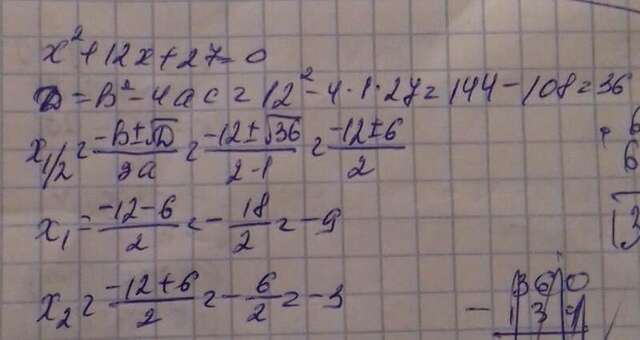 x²+12x+27=0
D=B²-4ac=12²-4·1·27=144-108=36
x1/2=(-B±√D)/2a=(-12±√36)/2·1=(-12±6)/2
x₁=(-12-6)/2=-18/2=-9
x₂=(-12+6)/2=-6/2=-3
6
6